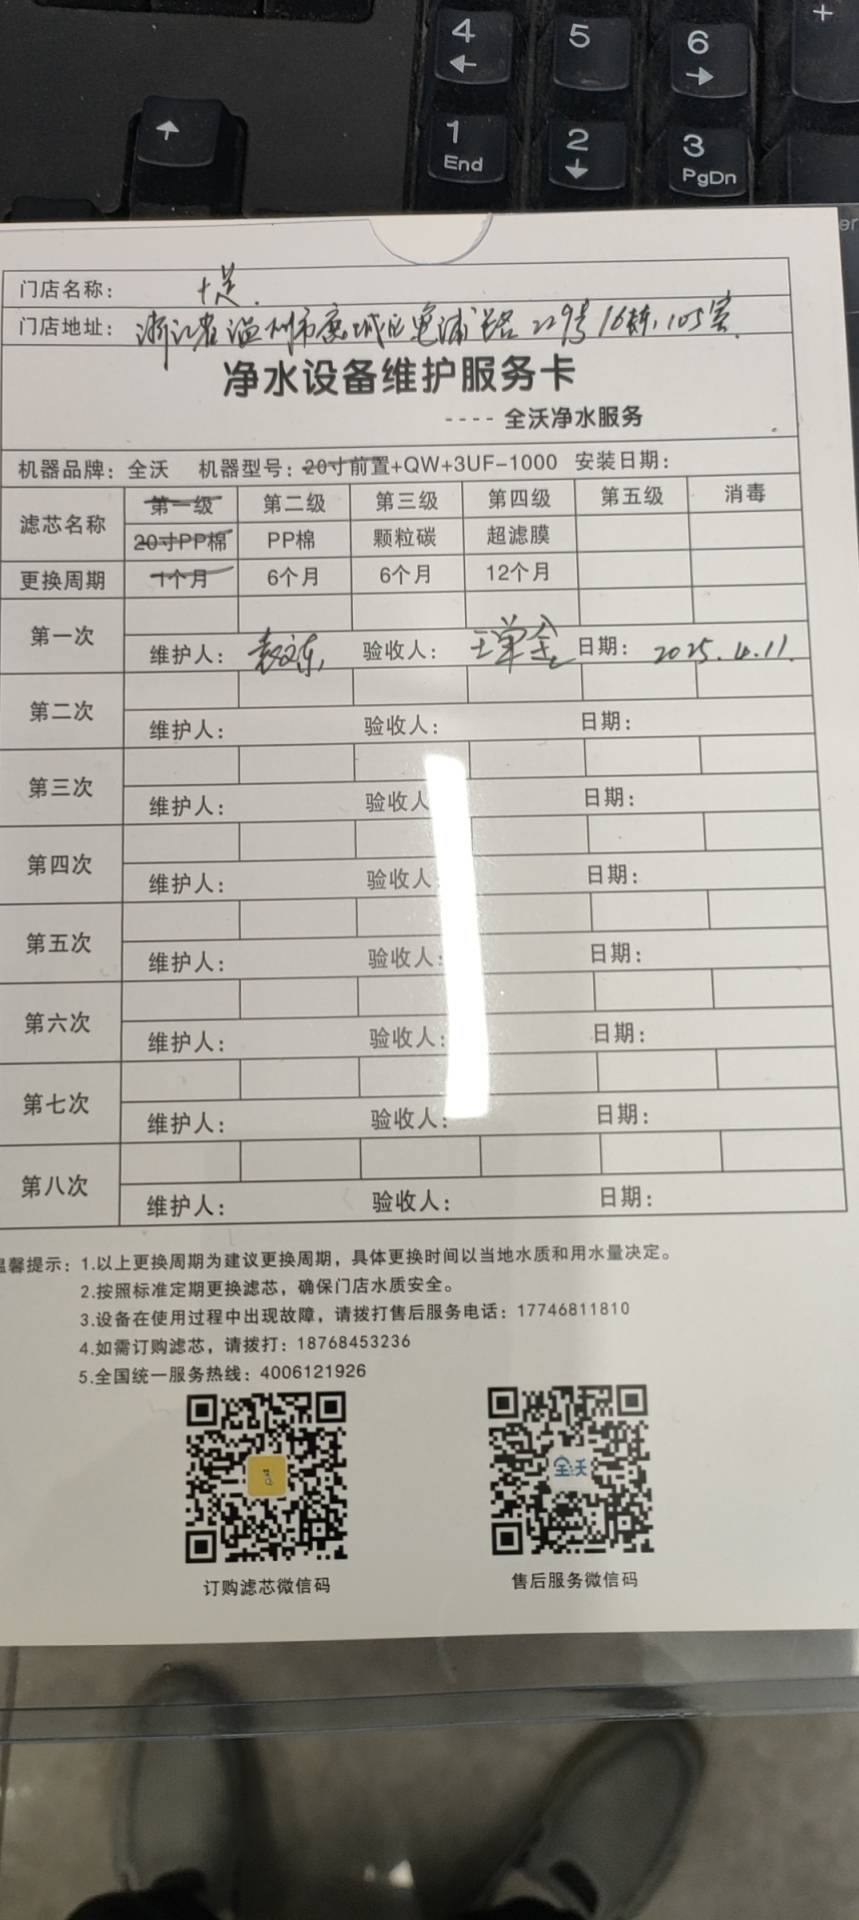 4 5 6 +
1 2 3
End PgDn
门店名称： 十足.
门店地址： 浙江省温州市鹿城区 浦路229号16栋,105室.
净水设备维护服务卡
---- 全沃净水服务
机器品牌：全沃 机器型号：20寸前置+QW+3UF-1000 安装日期：
滤芯名称 第一级 第二级 第三级 第四级 第五级 消毒
20寸PP棉 PP棉 颗粒碳 超滤膜
更换周期 1个月 6个月 6个月 12个月
第一次
维护人： 验收人： 日期：2025.4.11.
第二次
维护人： 验收人： 日期：
第三次
维护人： 验收人 日期：
第四次
维护人： 验收人： 日期：
第五次
维护人： 验收人： 日期：
第六次
维护人： 验收人： 日期：
第七次
维护人： 验收人： 日期：
第八次
维护人： 验收人： 日期：
温馨提示：1.以上更换周期为建议更换周期，具体更换时间以当地水质和用水量决定。
2.按照标准定期更换滤芯，确保门店水质安全。
3.设备在使用过程中出现故障，请拨打售后服务电话：17746811810
4.如需订购滤芯，请拨打：18768453236
5.全国统一服务热线：4006121926
全沃
订购滤芯微信码 售后服务微信码